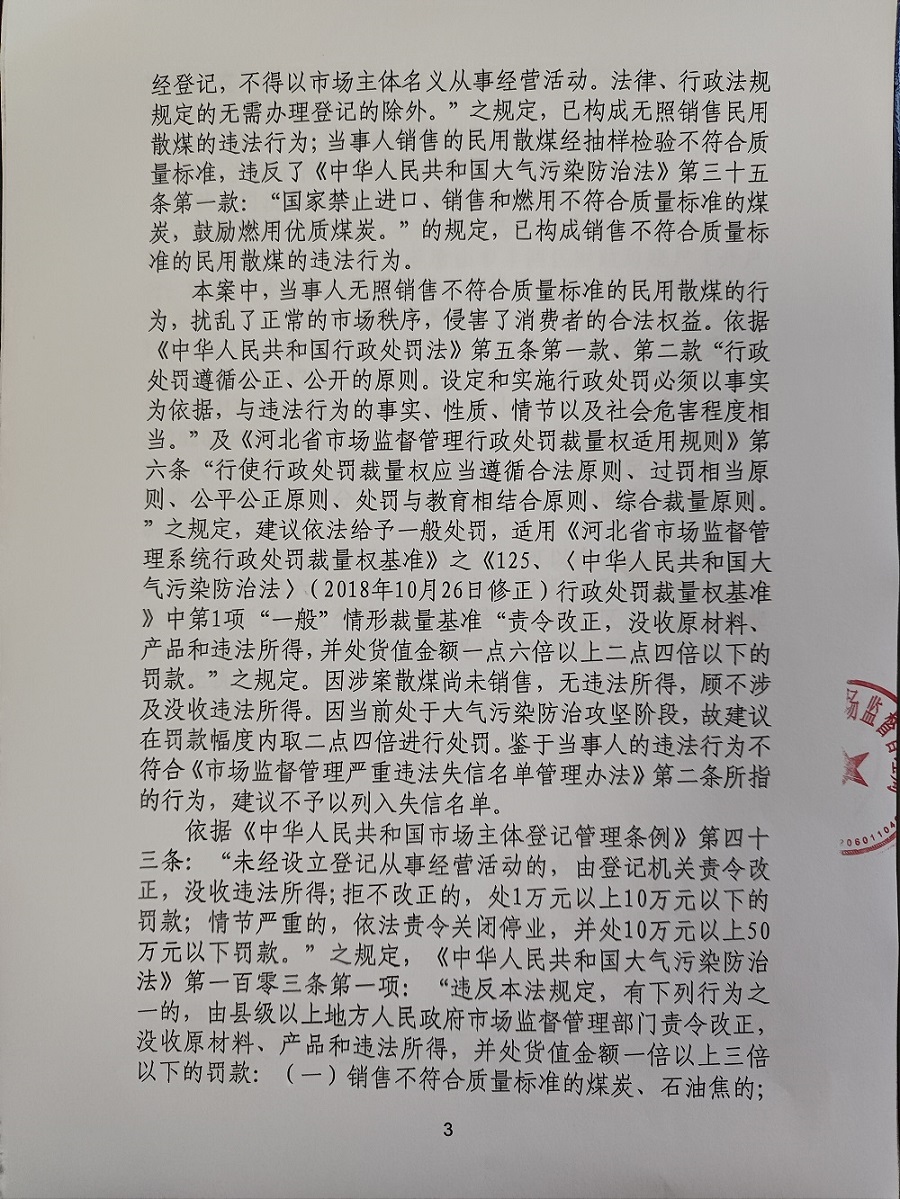 经登记，不得以市场主体名义从事经营活动。法律、行政法规
规定的无需办理登记的除外。”之规定，已构成无照销售民用
散煤的违法行为；当事人销售的民用散煤经抽样检验不符合质
量标准，违反了《中华人民共和国大气污染防治法》第三十五
条第一款：“国家禁止进口、销售和燃用不符合质量标准的煤
炭，鼓励燃用优质煤炭。”的规定，已构成销售不符合质量标
准的民用散煤的违法行为。
本案中，当事人无照销售不符合质量标准的民用散煤的行
为，扰乱了正常的市场秩序，侵害了消费者的合法权益。依据
《中华人民共和国行政处罚法》第五条第一款、第二款“行政
处罚遵循公正、公开的原则。设定和实施行政处罚必须以事实
为依据，与违法行为的事实、性质、情节以及社会危害程度相
当。”及《河北省市场监督管理行政处罚裁量权适用规则》第
六条“行使行政处罚裁量权应当遵循合法原则、过罚相当原
则、公平公正原则、处罚与教育相结合原则、综合裁量原则。
”之规定，建议依法给予一般处罚，适用《河北省市场监督管
理系统行政处罚裁量权基准》之《125、〈中华人民共和国大
气污染防治法〉（2018年10月26日修正）行政处罚裁量权基准
》中第1项“一般”情形裁量基准“责令改正，没收原材料、
产品和违法所得，并处货值金额一点六倍以上二点四倍以下的
罚款。”之规定。因涉案散煤尚未销售，无违法所得，顾不涉
及没收违法所得。因当前处于大气污染防治攻坚阶段，故建议
在罚款幅度内取二点四倍进行处罚。鉴于当事人的违法行为不
符合《市场监督管理严重违法失信名单管理办法》第二条所指
的行为，建议不予以列入失信名单。
依据《中华人民共和国市场主体登记管理条例》第四十
三条：“未经设立登记从事经营活动的，由登记机关责令改
正，没收违法所得；拒不改正的，处1万元以上10万元以下的
罚款；情节严重的，依法责令关闭停业，并处10万元以上50
万元以下罚款。”之规定，《中华人民共和国大气污染防治
法》第一百零三条第一项：“违反本法规定，有下列行为之
一的，由县级以上地方人民政府市场监督管理部门责令改正，
没收原材料、产品和违法所得，并处货值金额一倍以上三倍
以下的罚款：（一）销售不符合质量标准的煤炭、石油焦的；
3
场监督